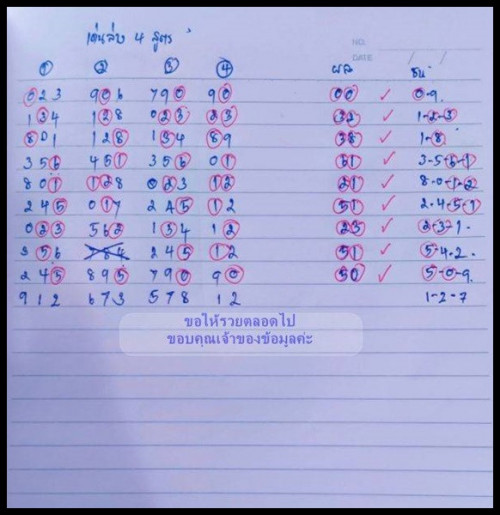 เด่นล่าง 4 สูตร
NO.
DATE / /
① ② ③ ④ ผล ชน
023 906 790 90 00 ✓ 0-9.
134 128 023 23 32 ✓ 1-2-3
801 128 134 89 38 ✓ 1-8
356 451 356 01 61 ✓ 3-5-6-1
801 128 023 12 21 ✓ 8-0-1-2
245 017 245 12 51 ✓ 2-4-5-1
023 562 134 12 23 ✓ 2-3-1.
356 784 245 12 51 ✓ 5-4-2.
245 895 790 90 50 ✓ 5-0-9.
912 673 578 12 1-2-7
ขอให้รวยตลอดไป
ขอบคุณเจ้าของข้อมูลค่ะ